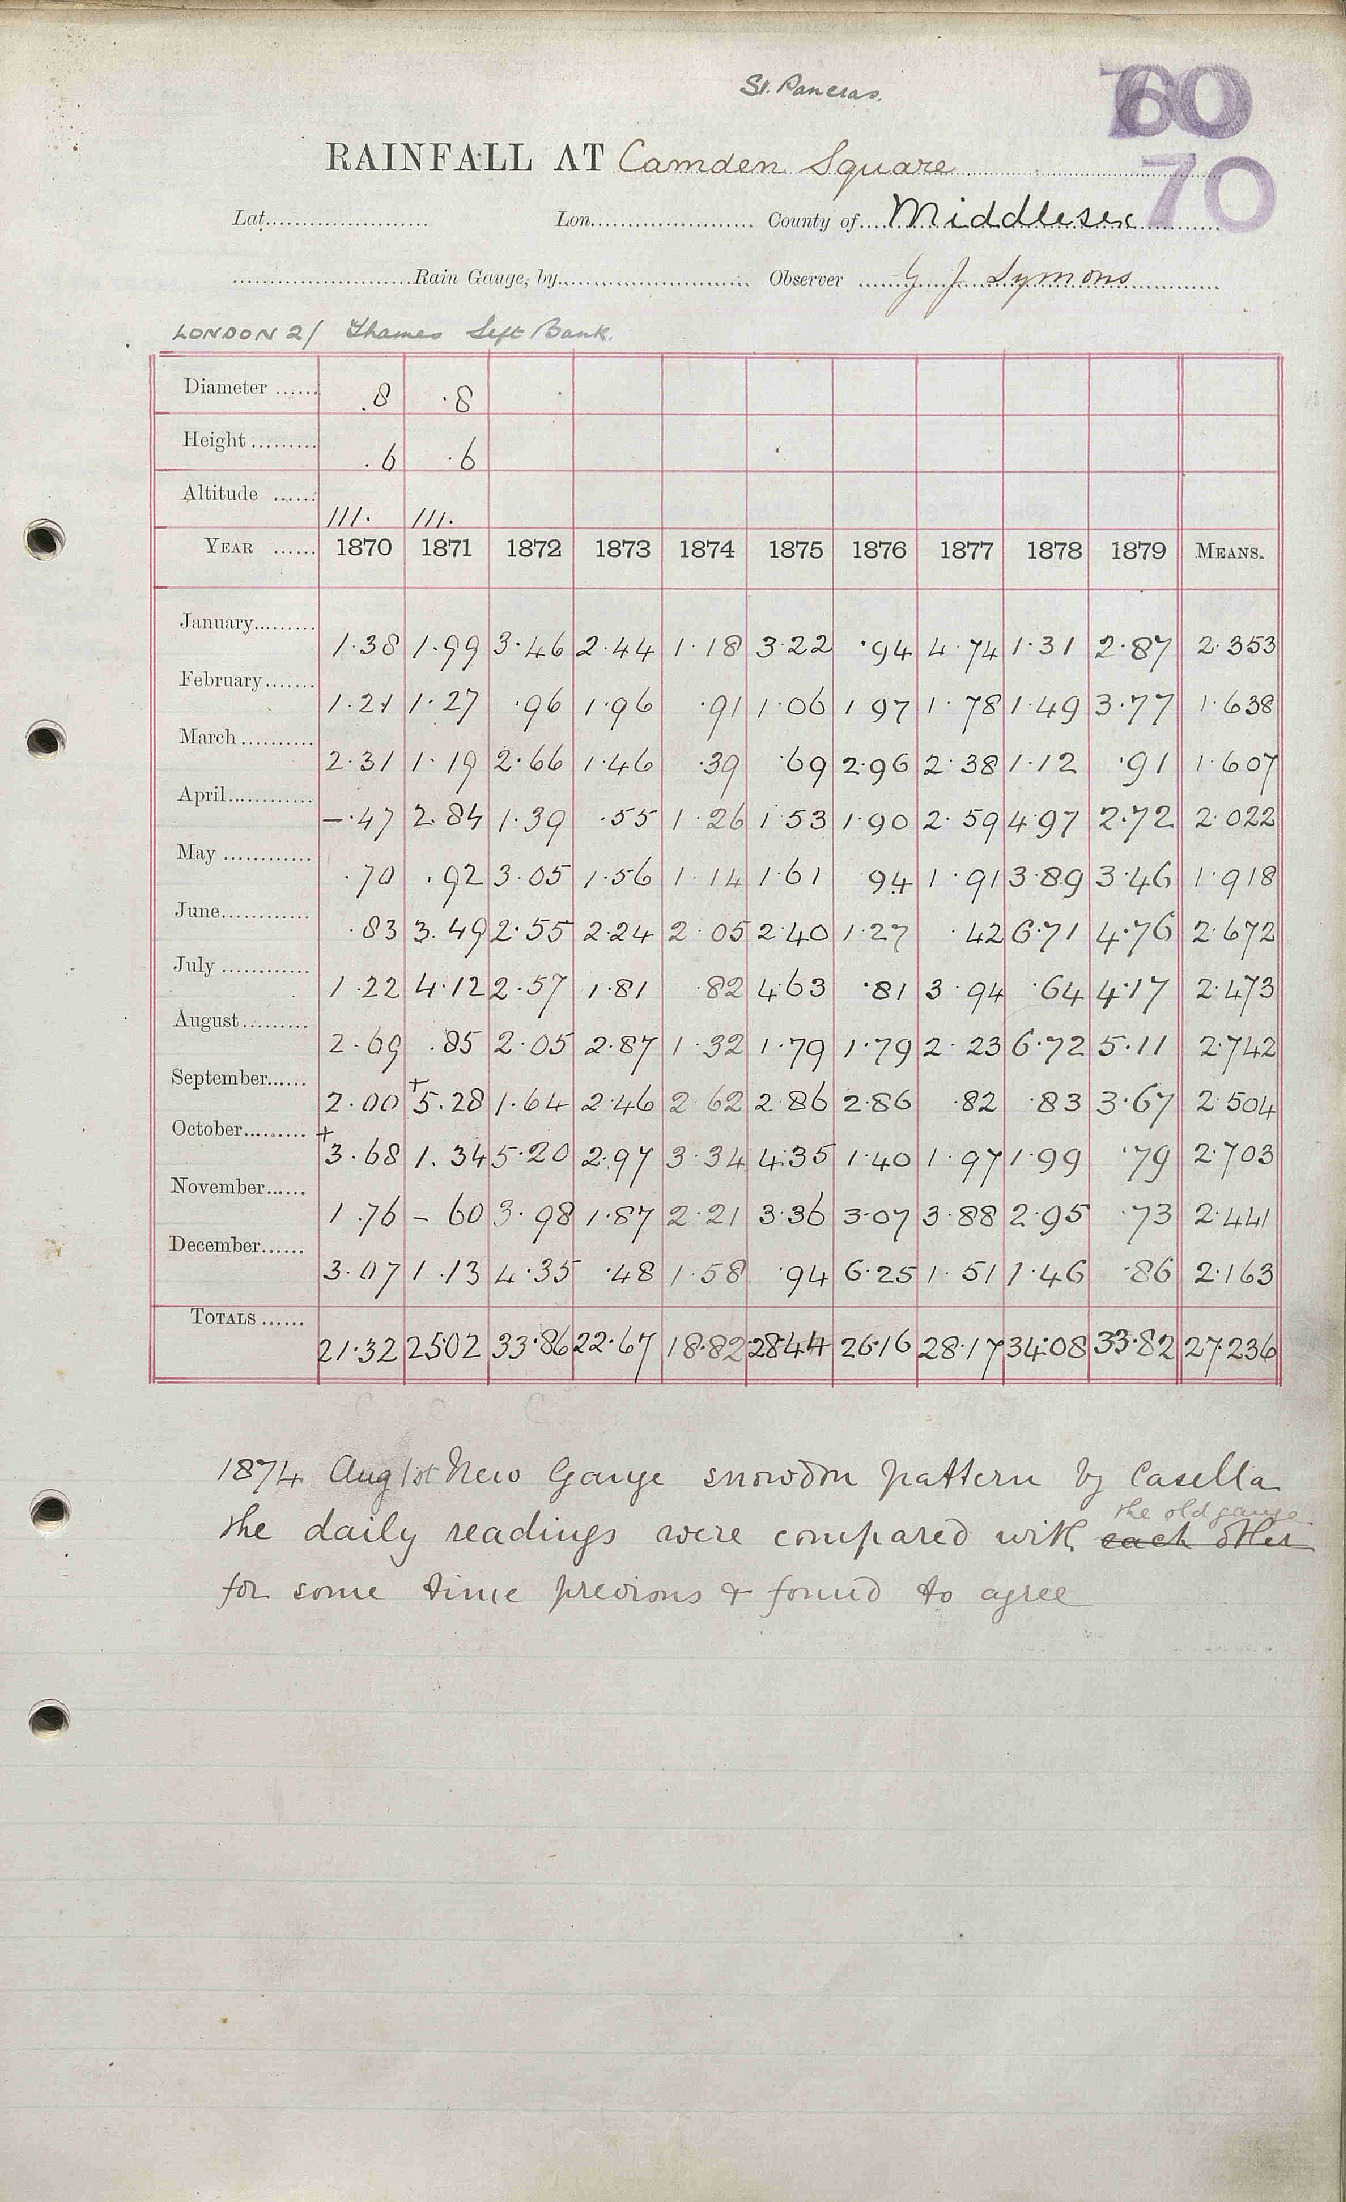 St. Pancras.
60
70
RAINFALL AT Camden Square
Lat. Lon. County of Middlesex
Rain Gauge, by Observer G J Symons
LONDON 2/ Thames Left Bank.
Diameter 8 8
Height 6 6
Altitude 111. 111.
YEAR 1870 1871 1872 1873 1874 1875 1876 1877 1878 1879 MEANS.
January 1.38 1.99 3.46 2.44 1.18 3.22 .94 4.74 1.31 2.87 2.353
February 1.21 1.27 .96 1.96 .91 1.06 1.97 1.78 1.49 3.77 1.638
March 2.31 1.19 2.66 1.46 .39 .69 2.96 2.38 1.12 .91 1.607
April -.47 2.84 1.39 .55 1.26 1.53 1.90 2.59 4.97 2.72 2.022
May .70 .92 3.05 1.56 1.14 1.61 94 1.91 3.89 3.46 1.918
June .83 3.49 2.55 2.24 2.05 2.40 1.27 .42 6.71 4.76 2.672
July 1.22 4.12 2.57 1.81 .82 4.63 .81 3.94 .64 4.17 2.473
August 2.69 .85 2.05 2.87 1.32 1.79 1.79 2.23 6.72 5.11 2.742
September 2.00 +5.28 1.64 2.46 2.62 2.86 2.86 .82 .83 3.67 2.504
October +3.68 1.34 5.20 2.97 3.34 4.35 1.40 1.97 1.99 .79 2.703
November 1.76 - 60 3.98 1.87 2.21 3.36 3.07 3.88 2.95 .73 2.441
December 3.07 1.13 4.35 .48 1.58 .94 6.25 1.51 1.46 .86 2.163
TOTALS 21.32 25.02 33.86 22.67 18.82 28.44 26.16 28.17 34.08 33.82 27.236
1874 Aug 1st New Gauge snowdon pattern by Casella
the old gauge
the daily readings were compared with each other
for some time previous & found to agree